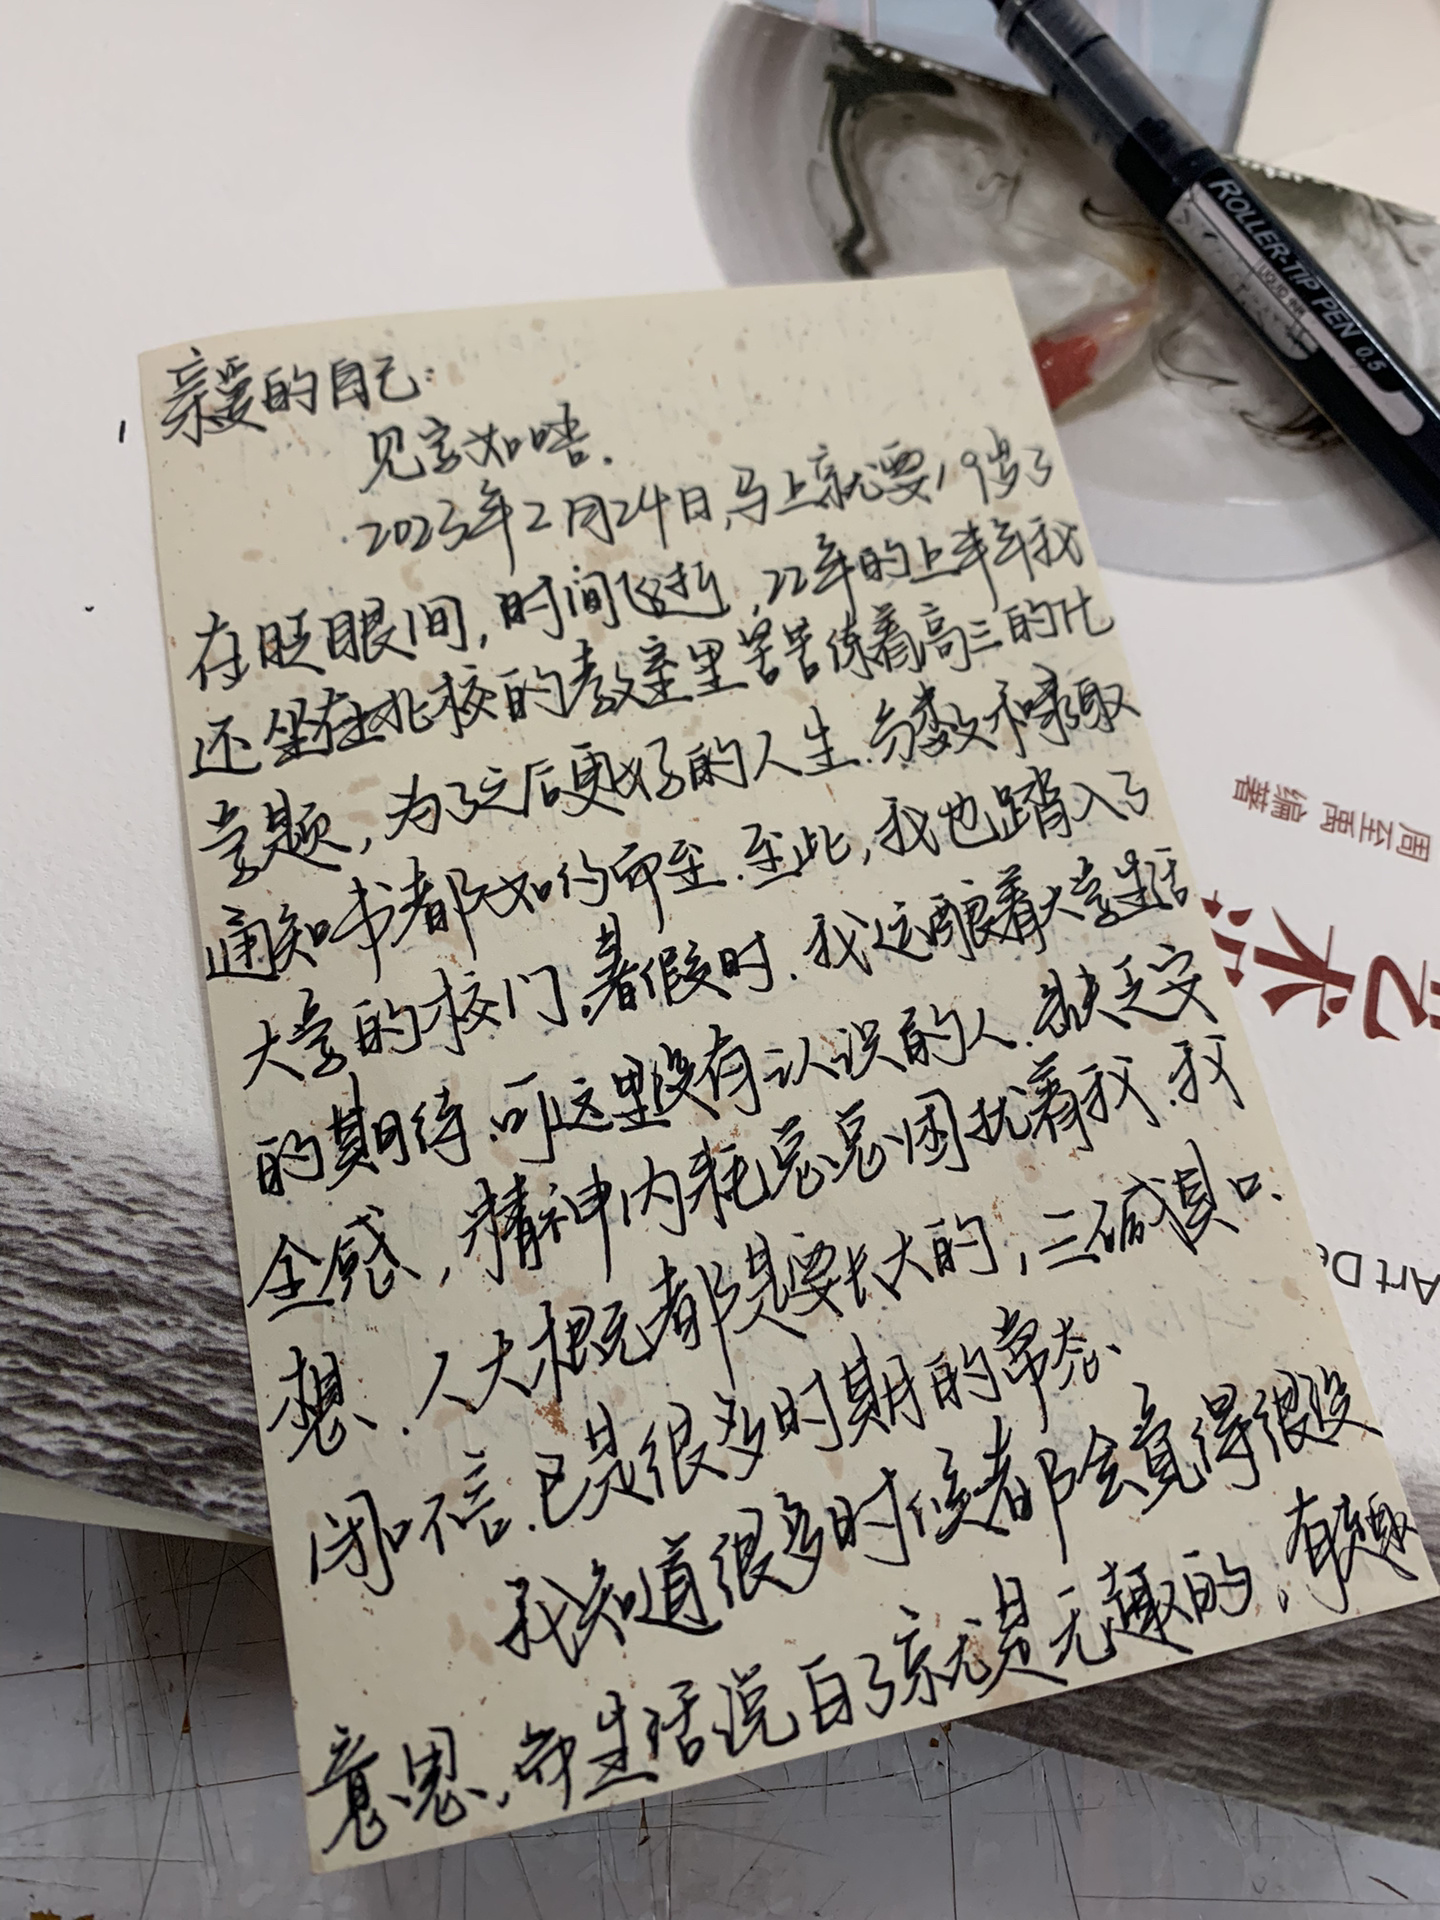 亲爱的自己：
见字如晤.
2023年2月24日,马上就要19岁了
在眨眼间,时间飞逝,22年的上半年我
还坐在北校的教室里苦苦练着高三的化
学题,为了之后更好的人生.分数和录取
通知书都如约而至.至此,我也踏入了
大学的校门.暑假时.我还酿着大学生活
的期待.可这里没有认识的人.缺乏安
全感,精神内耗总总困扰着我.我
想.人大概都是要长大的,三缄其口.
闭口不言.已是很多时期的常态、
我知道很多时候都会觉得很没
意思,而生活说白了就是无趣的,有趣
ROLLER-TIP PEN 0.5
LIQUID INK
周至禹 编著
艺术
Art De